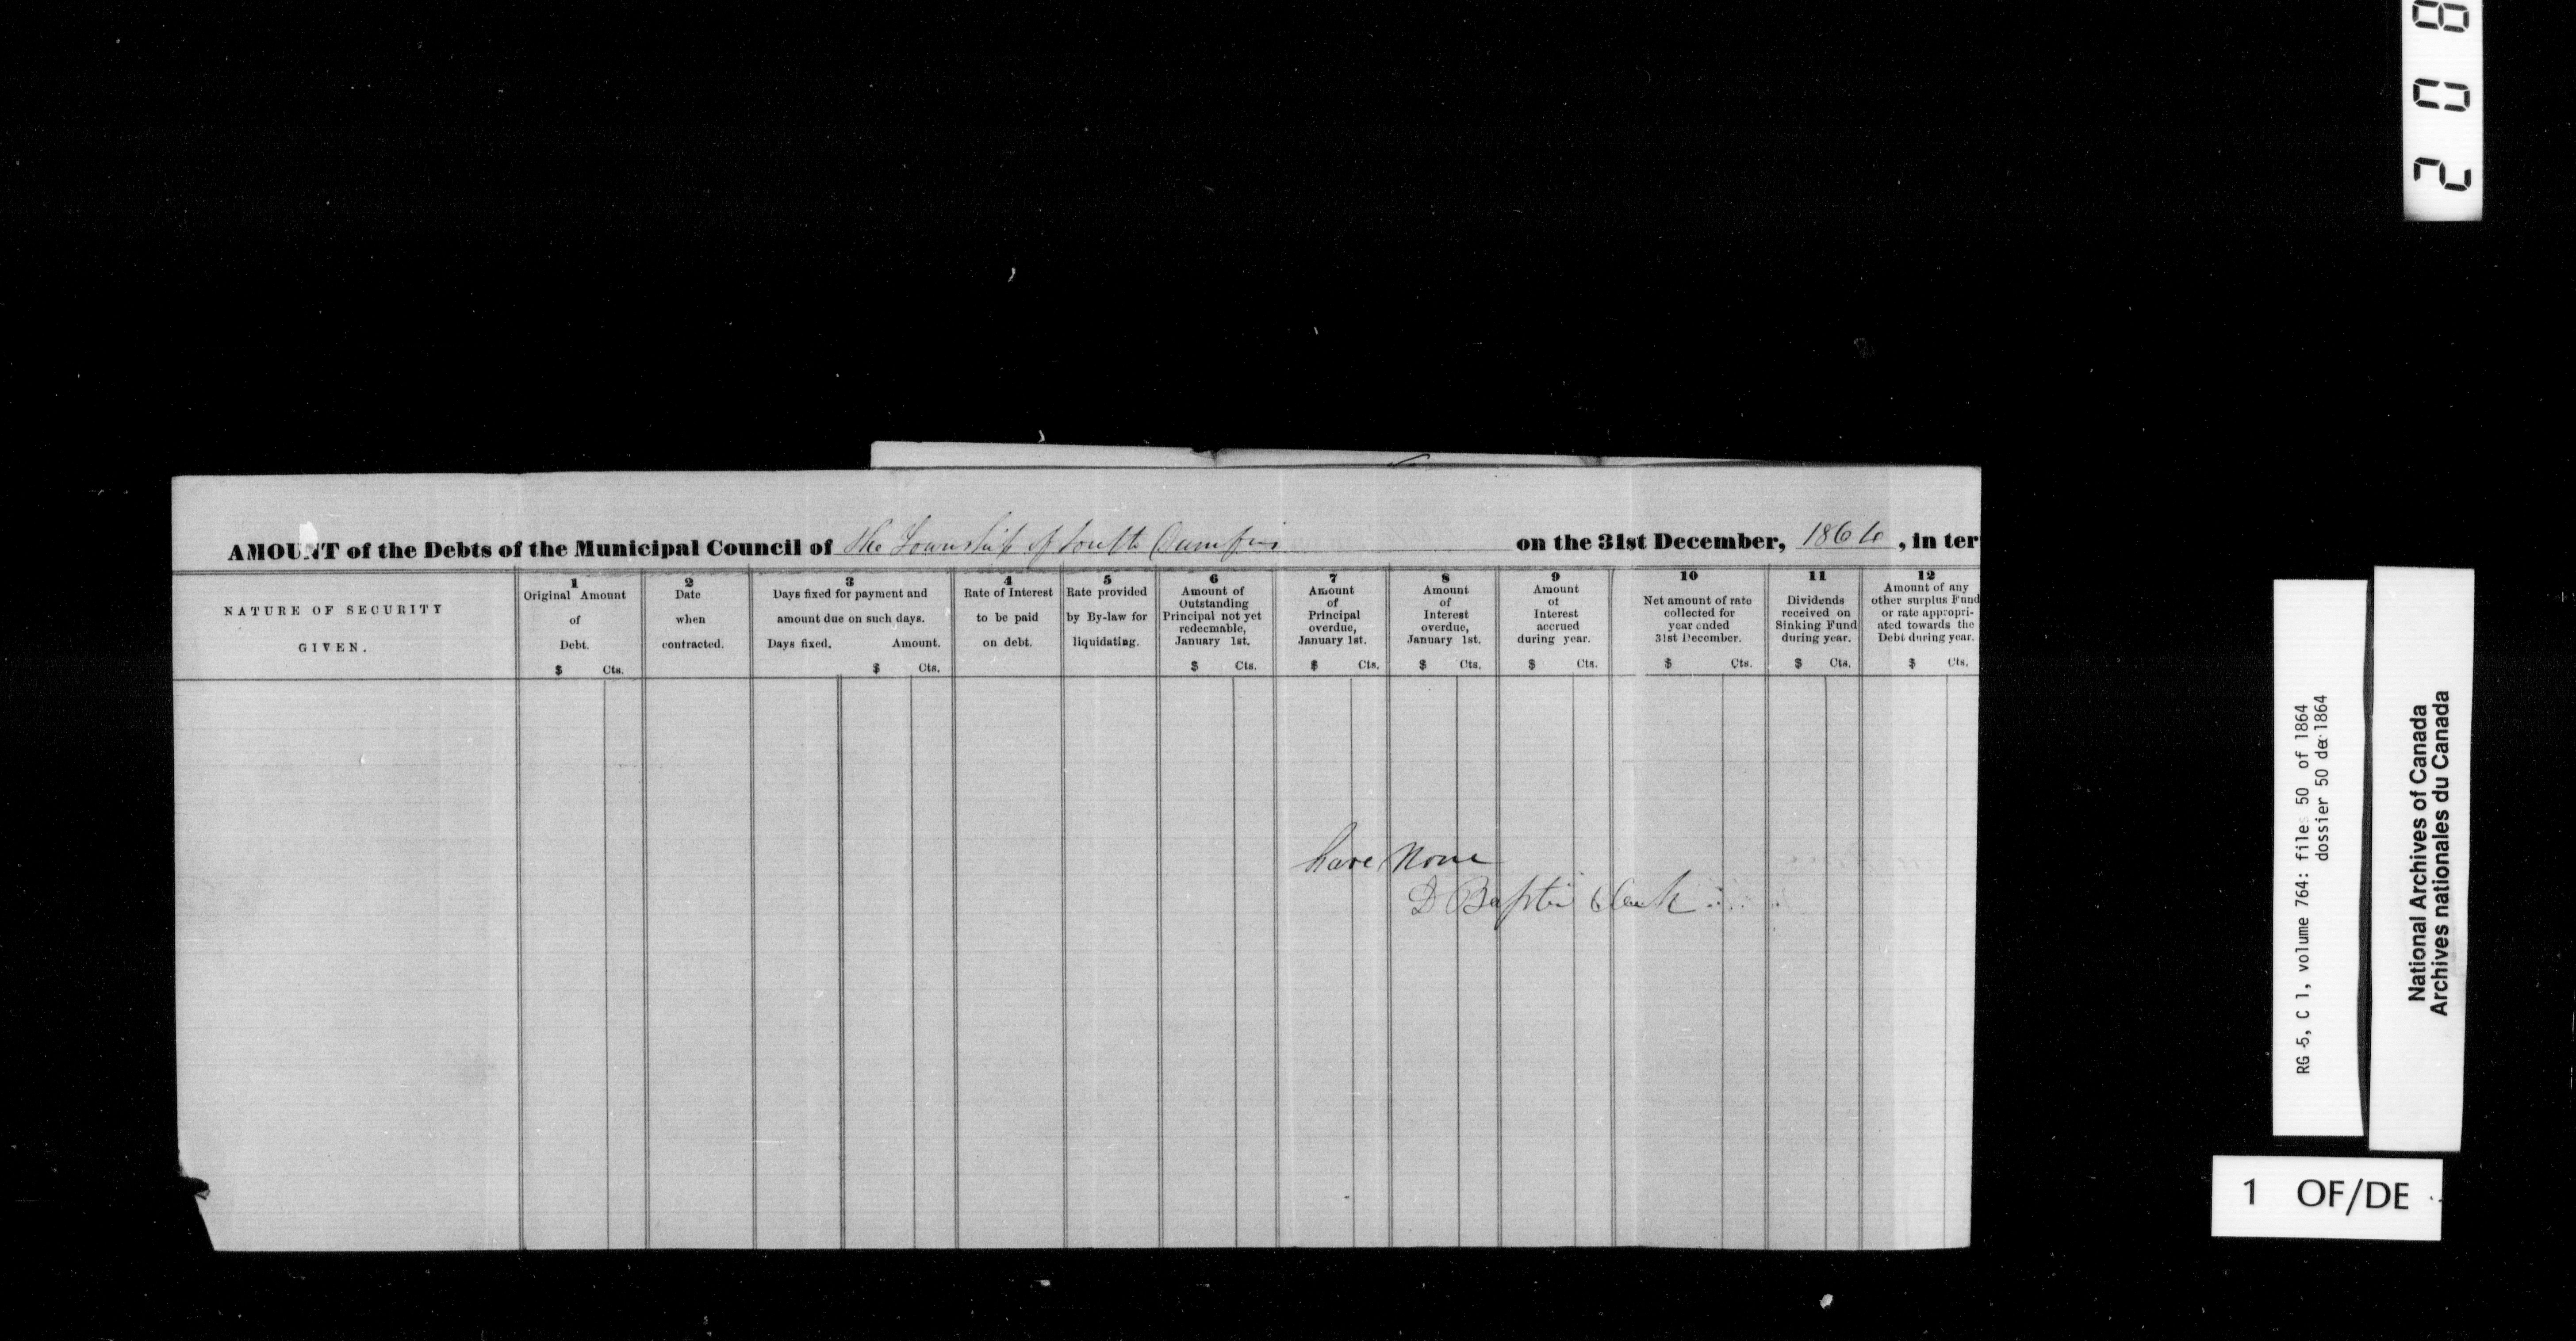 2 0 8
AMOUNT of the Debts of the Municipal Council of the Township of South Dumfries on the 31st December, 1864, in ter
NATURE OF SECURITY
GIVEN.
1
Original Amount
of
Debt.
$ Cts.
2
Date
when
contracted.
3
Days fixed for payment and
amount due on such days.
Days fixed. Amount.
$ Cts.
4
Rate of Interest
to be paid
on debt.
5
Rate provided
by By-law for
liquidating.
6
Amount of
Outstanding
Principal not yet
redeemable,
January 1st.
$ Cts.
7
Amount
of
Principal
overdue,
January 1st.
$ Cts.
8
Amount
of
Interest
overdue,
January 1st.
$ Cts.
9
Amount
of
Interest
accrued
during year.
$ Cts.
10
Net amount of rate
collected for
year ended
31st December.
$ Cts.
11
Dividends
received on
Sinking Fund
during year.
$ Cts.
12
Amount of any
other surplus Fund
or rate appropri-
ated towards the
Debt during year.
$ Cts.
have None
D Baptie Clerk
RG 5, C 1, volume 764: file 50 of 1864
dossier 50 de 1864
National Archives of Canada
Archives nationales du Canada
1 OF/DE